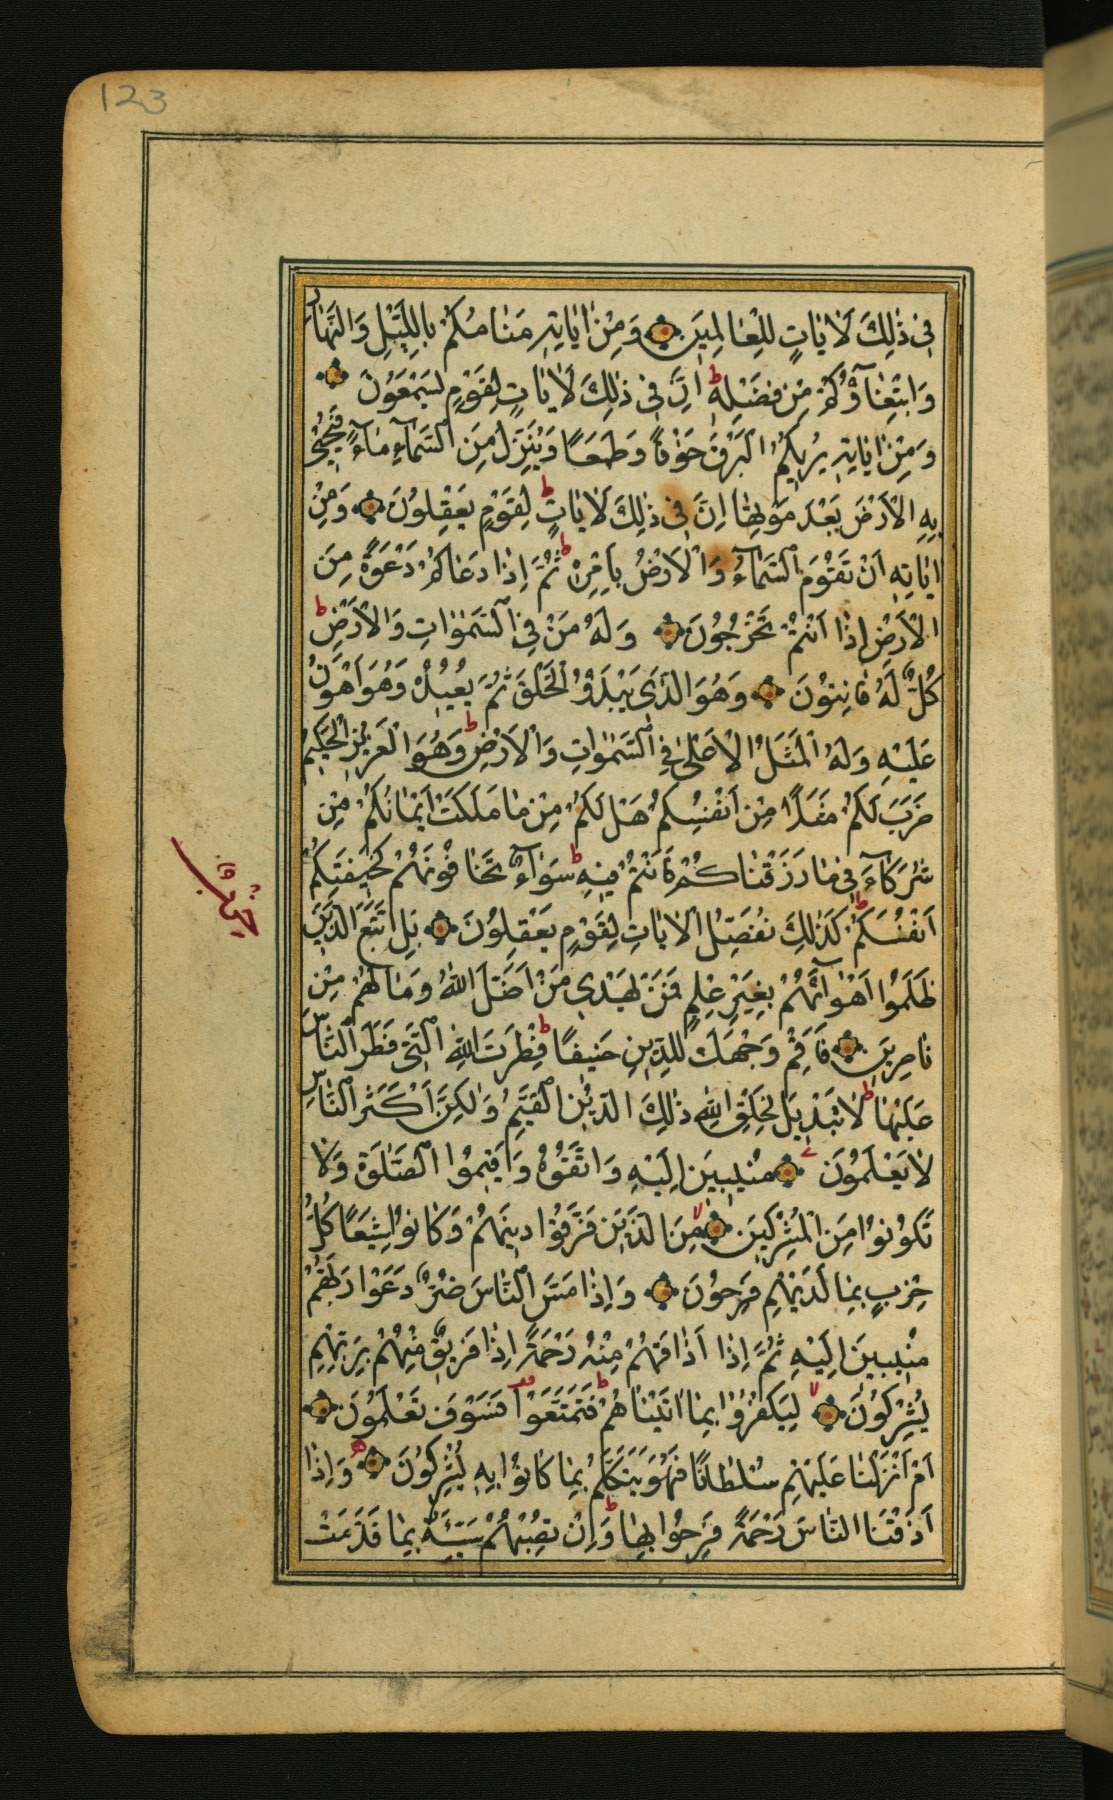 123
فِي ذٰلِكَ لَاٰيَاتٍ لِلْعَالِمِينَ وَمِنْ اٰيَاتِهِ مَنَامُكُمْ بِاللَّيْلِ وَالنَّهَارِ
وَابْتِغَاؤُكُمْ مِنْ فَضْلِهِ ط اِنَّ فِي ذٰلِكَ لَاٰيَاتٍ لِقَوْمٍ يَسْمَعُونَ
وَمِنْ اٰيَاتِهِ يُرِيكُمُ الْبَرْقَ خَوْفًا وَطَمَعًا وَيُنَزِّلُ مِنَ السَّمَآءِ مَآءً فَيُحْيِي
بِهِ الْاَرْضَ بَعْدَ مَوْتِهَا اِنَّ فِي ذٰلِكَ لَاٰيَاتٍ لِقَوْمٍ يَعْقِلُونَ وَمِنْ
اٰيَاتِهِ اَنْ تَقُومَ السَّمَآءُ وَالْاَرْضُ بِاَمْرِهِ ط ثُمَّ اِذَا دَعَاكُمْ دَعْوَةً مِنَ
الْاَرْضِ اِذَا اَنْتُمْ تَخْرُجُونَ وَلَهُ مَنْ فِي السَّمٰوَاتِ وَالْاَرْضِ ط
كُلٌّ لَهُ قَانِتُونَ وَهُوَ الَّذِي يَبْدَؤُ الْخَلْقَ ثُمَّ يُعِيدُهُ وَهُوَ اَهْوَنُ
عَلَيْهِ وَلَهُ الْمَثَلُ الْاَعْلٰى فِي السَّمٰوَاتِ وَالْاَرْضِ ط وَهُوَ الْعَزِيزُ الْحَكِيمُ
ضَرَبَ لَكُمْ مَثَلًا مِنْ اَنْفُسِكُمْ هَلْ لَكُمْ مِنْ مَا مَلَكَتْ اَيْمَانُكُمْ مِنْ
شُرَكَآءَ فِي مَا رَزَقْنَاكُمْ فَاَنْتُمْ فِيهِ سَوَآءٌ تَخَافُونَهُمْ كَخِيفَتِكُمْ
اَنْفُسَكُمْ ط كَذٰلِكَ نُفَصِّلُ الْاٰيَاتِ لِقَوْمٍ يَعْقِلُونَ بَلِ اتَّبَعَ الَّذِينَ
ظَلَمُوا اَهْوَآءَهُمْ بِغَيْرِ عِلْمٍ فَمَنْ يَهْدِي مَنْ اَضَلَّ اللّٰهُ وَمَا لَهُمْ مِنْ
نَاصِرِينَ فَاَقِمْ وَجْهَكَ لِلدِّينِ حَنِيفًا ط فِطْرَتَ اللّٰهِ الَّتِي فَطَرَ النَّاسَ
عَلَيْهَا ط لَا تَبْدِيلَ لِخَلْقِ اللّٰهِ ذٰلِكَ الدِّينُ الْقَيِّمُ وَلٰكِنَّ اَكْثَرَ النَّاسِ
لَا يَعْلَمُونَ مُنِيبِينَ اِلَيْهِ وَاتَّقُوهُ وَاَقِيمُوا الصَّلٰوةَ وَلَا
تَكُونُوا مِنَ الْمُشْرِكِينَ لا مِنَ الَّذِينَ فَرَّقُوا دِينَهُمْ وَكَانُوا شِيَعًا كُلُّ
حِزْبٍ بِمَا لَدَيْهِمْ فَرِحُونَ وَاِذَا مَسَّ النَّاسَ ضُرٌّ دَعَوْا رَبَّهُمْ
مُنِيبِينَ اِلَيْهِ ثُمَّ اِذَا اَذَاقَهُمْ مِنْهُ رَحْمَةً اِذَا فَرِيقٌ مِنْهُمْ بِرَبِّهِمْ
يُشْرِكُونَ لا لِيَكْفُرُوا بِمَا اٰتَيْنَاهُمْ ط فَتَمَتَّعُوا فَسَوْفَ تَعْلَمُونَ
اَمْ اَنْزَلْنَا عَلَيْهِمْ سُلْطَانًا فَهُوَ يَتَكَلَّمُ بِمَا كَانُوا بِهِ يُشْرِكُونَ وَاِذَا
اَذَقْنَا النَّاسَ رَحْمَةً فَرِحُوا بِهَا ط وَاِنْ تُصِبْهُمْ سَيِّئَةٌ بِمَا قَدَّمَتْ